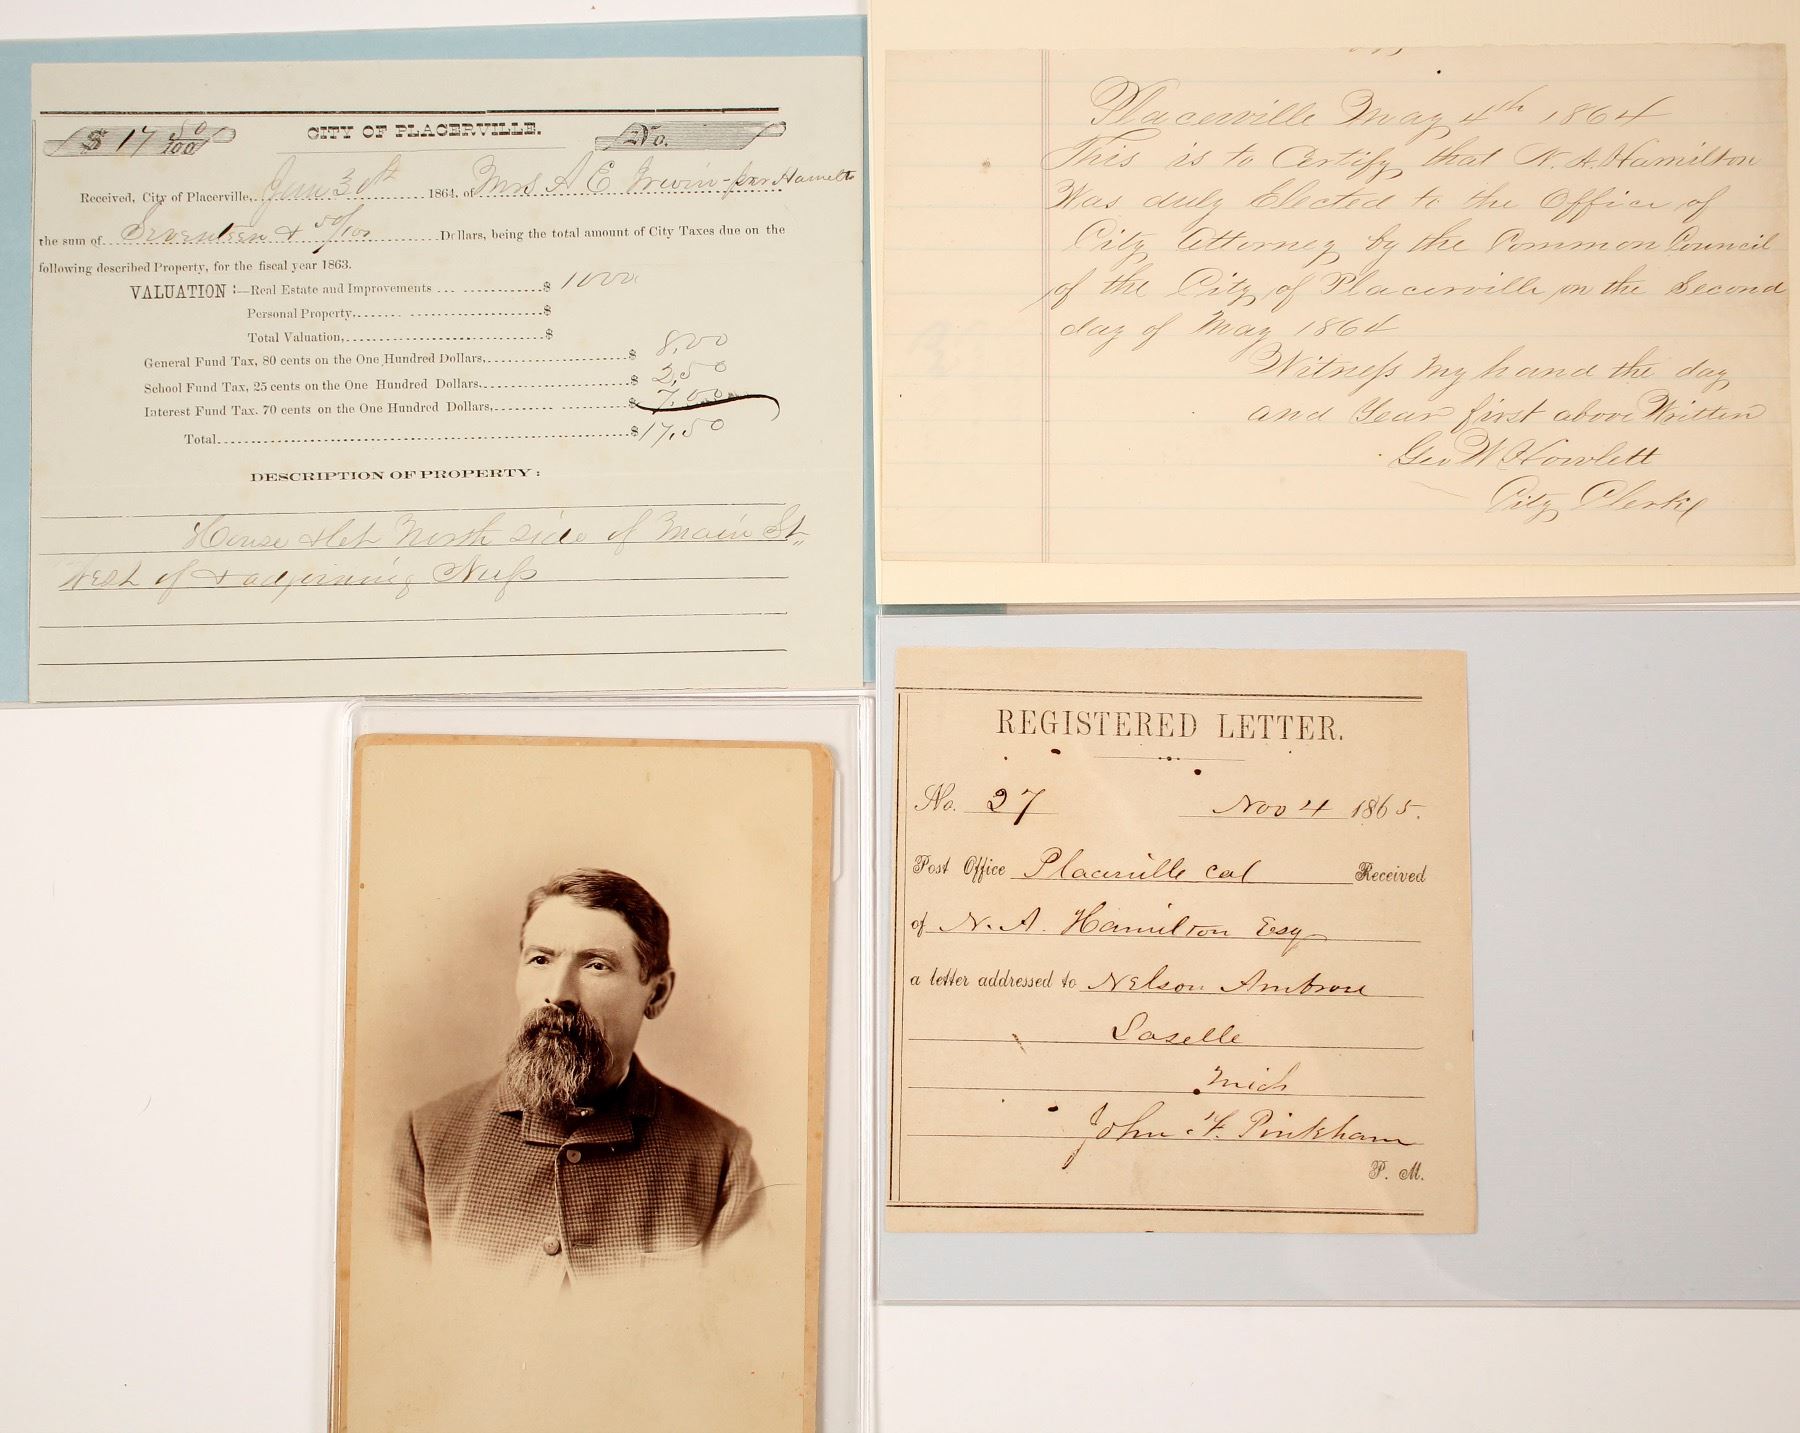 $ 17 50/100
CITY OF PLACERVILLE.
No.
Received, City of Placerville, Jan 30th 1864, of Mrs A E Irwin - per Hamilto
the sum of Seventeen & 50/100 Dollars, being the total amount of City Taxes due on the
following described Property, for the fiscal year 1863.
VALUATION:—Real Estate and Improvements $ 1000
Personal Property, $
Total Valuation, $
General Fund Tax, 80 cents on the One Hundred Dollars, $ 8,00
School Fund Tax, 25 cents on the One Hundred Dollars. $ 2,50
Interest Fund Tax. 70 cents on the One Hundred Dollars, $ 7,00
Total $ 17,50
DESCRIPTION OF PROPERTY:
House & Lot North side of Main St.
West of & adjoining Nuss
Placerville May 4th 1864
This is to Certify that N. A. Hamilton
Was duly Elected to the Office of
City Attorney by the Common Council
of the City of Placerville on the Second
day of May 1864
Witness my hand the day
and Year first above Written
Geo W Howlett
City Clerk
REGISTERED LETTER.
No. 27 Nov 4 1865.
Post Office Placerville Cal Received
of N. A. Hamilton Esq
a letter addressed to Nelson Ambrose
Laselle
Mich
John F. Pinkham
P. M.